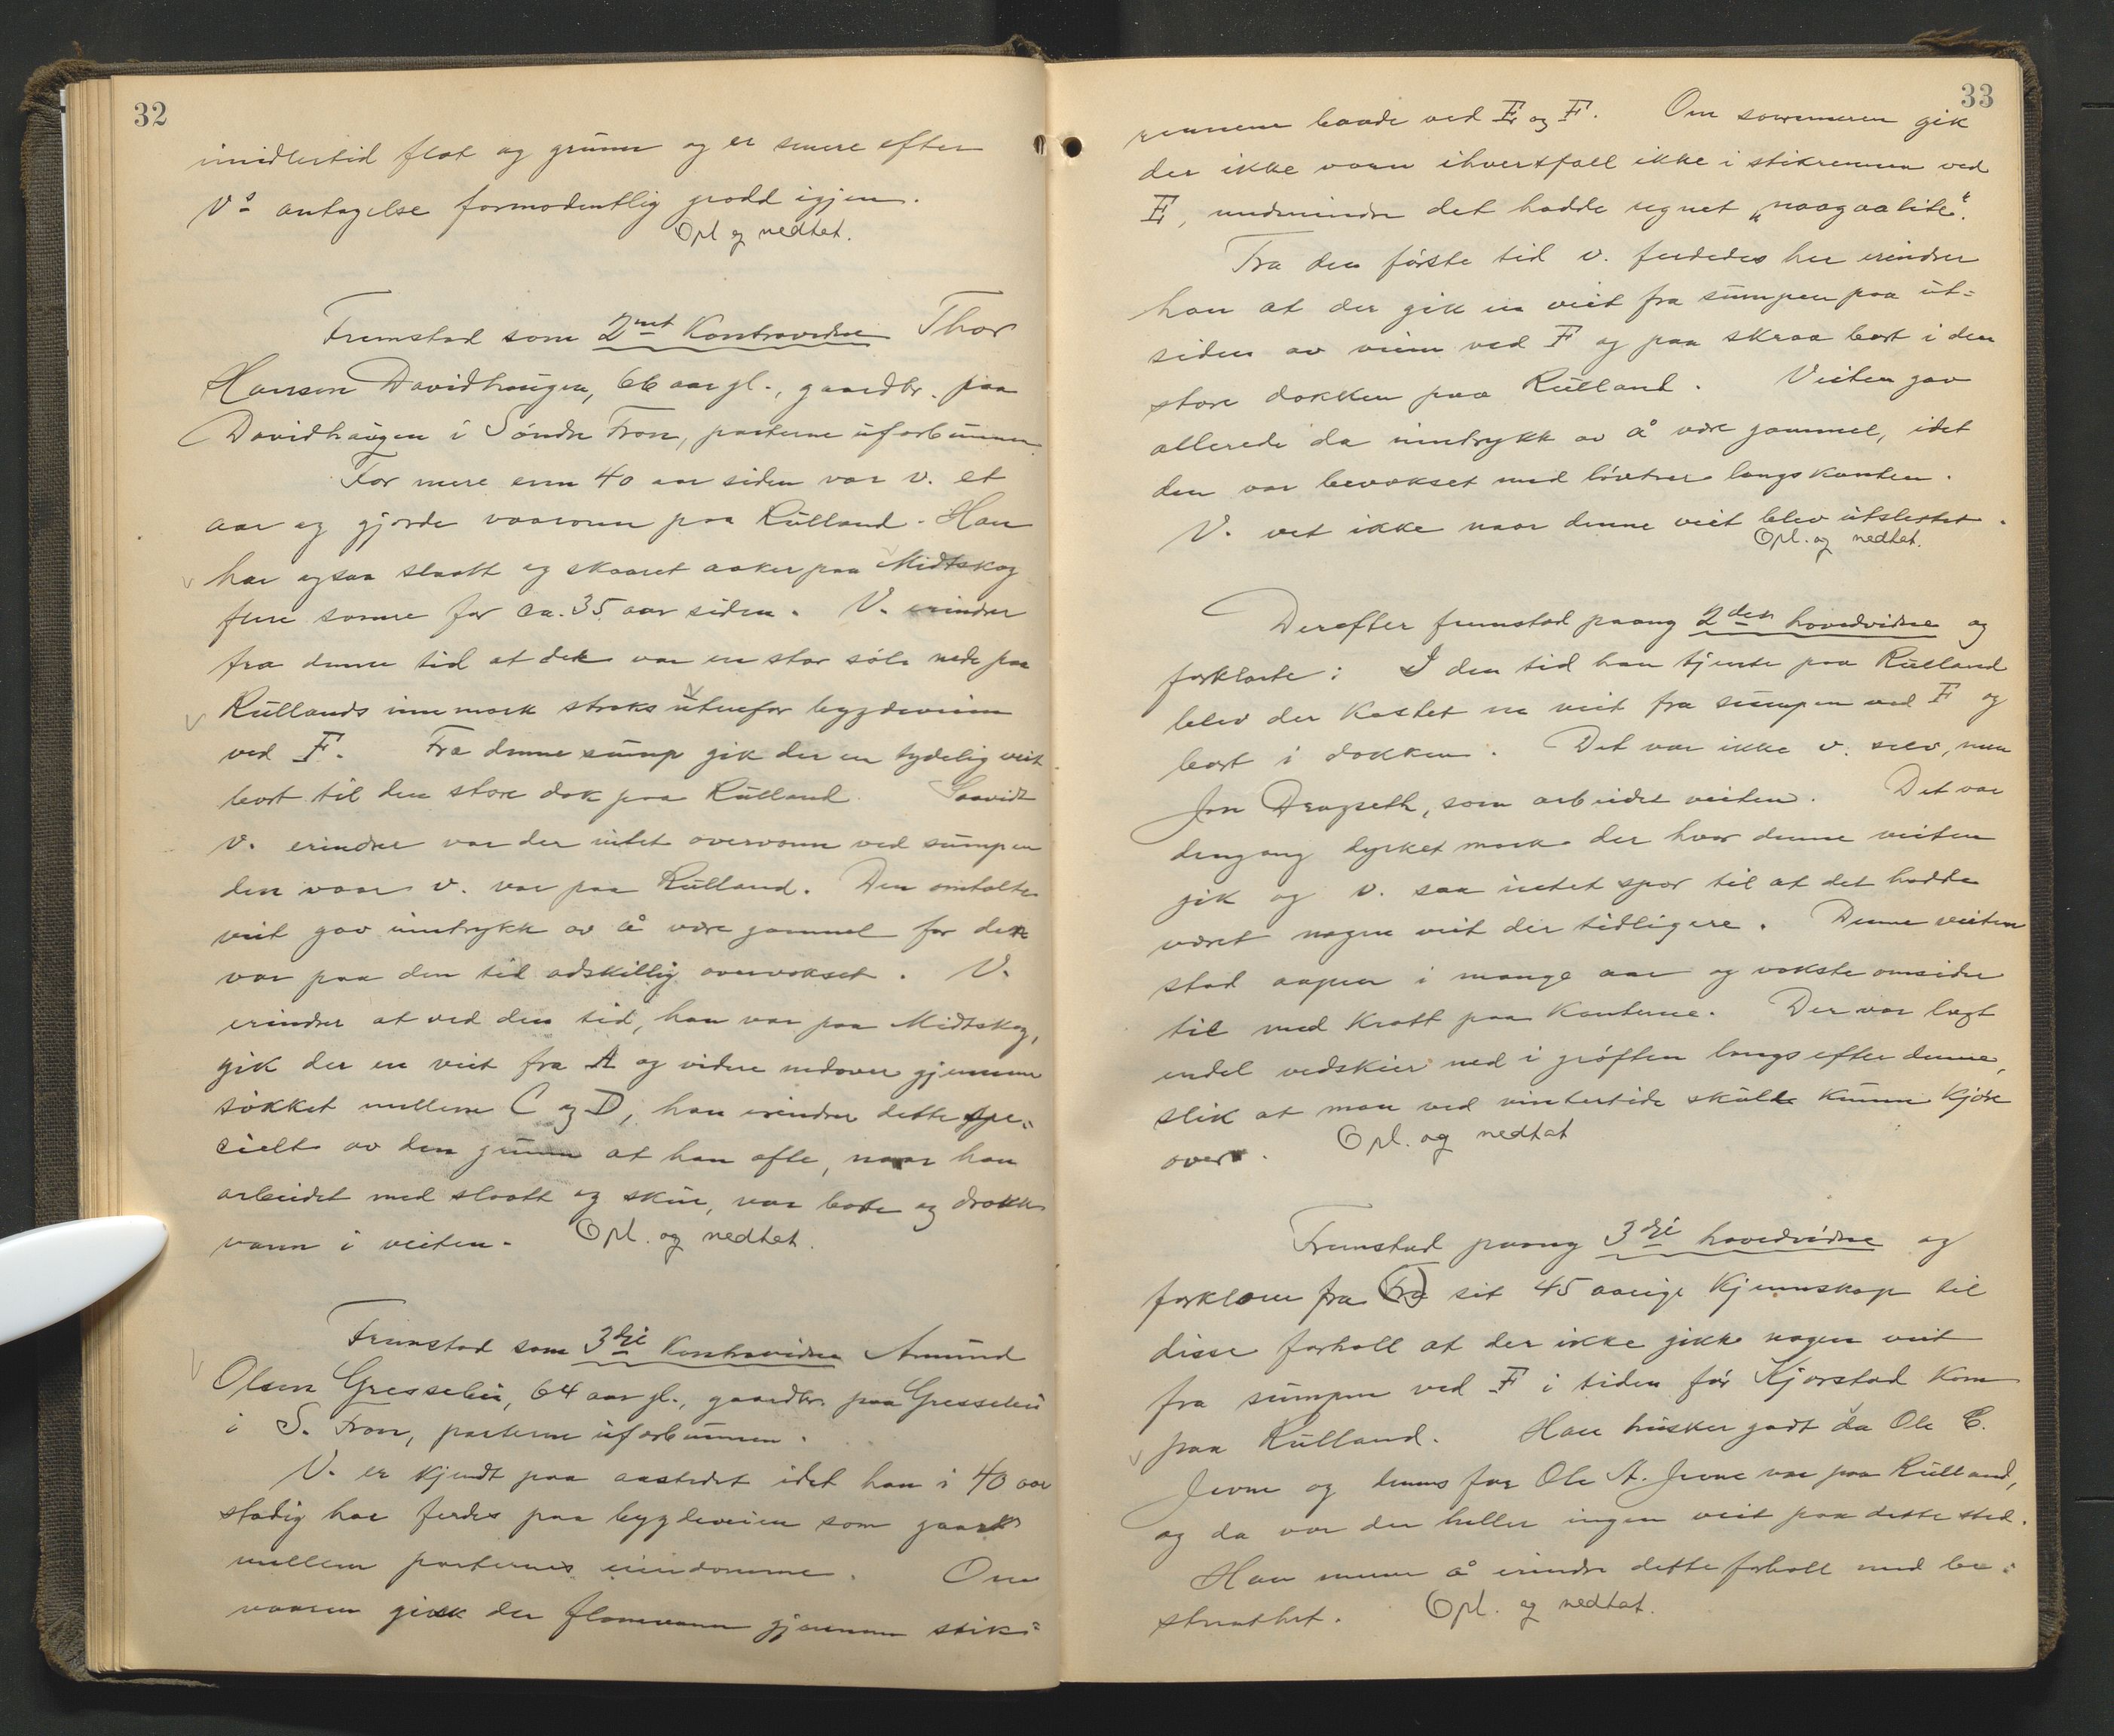 32
imidlertid flat og grunn og er senere efter
V.s antagelse formodentlig grodd igjen.
Opl og nedtat.
Fremstod som 2net Kontravidne Thor
Hansen Davidhaugen, 66 aar gl., gaardbr. paa
Davidhaugen i Söndre Fron, parterne uforbunnen.
For mere enn 40 aar siden var v. et
aar og gjorde vaaronn paa Rulland. Han
har ogsaa slaatt og skaaret aaker paa Midtskog
flere somre for ca. 35 aar siden. V. erindrer
fra denne tid at det var en stor söle nede paa
Rullands innmark straks utenfor bygdeveien
ved F. Fra denne sump gik der en tydelig veit
bort til den store dok paa Rulland. Saavidt
v. erindrer var der intet overvann ved sumpen
den vaar v. var paa Rulland. Den omtalte
veit gav inntrykk av å være gammel for den
var paa den tid adskillig overvokset. V.
erindrer at ved den tid, han var paa Midtskog,
gik der en veit fra A og videre nedover gjennem
søkket mellem C og D, han erindrer dette spe-
cielt av den grunn at han ofte, naar han
arbeidet med slaatt og skur, var borte og drakk
vann i veiten. Opl. og nedtat.
Fremstod som 3dje Kontravidne Amund
Olsen Gresselien, 64 aar gl., gaardbr. paa Gresselien
i S. Fron, parterne uforbunnen.
V. er kjendt paa aastedet idet han i 40 aar
stadig har ferdes paa bygdeveien som gaar
mellem parternes eiendomme. Om
vaaren gik der flomvann gjennem stik-
33
rennene baade ved E og F. Om sommeren gik
der ikke vann ihvertfall ikke i stikrennen ved
E, undtagen det hadde regnet „naagaa lite".
Fra den første tid v. ferdedes her erindrer
han at der gik en veit fra sumpen paa ut-
siden av veien ved F og paa skraa bort i den
store dokken paa Rulland. Veiten gav
allerede da inntrykk av å være gammel, idet
den var bevokset med lövtrær langs kanten.
V. vet ikke naar denne veit blev utslettet.
Opl. og nedtat.
Derefter fremstod paany 2det hovedvidne og
forklarte: I den tid han tjente paa Rulland
blev der kastet en veit fra sumpen ved F og
bort i dokken. Det var ikke v. selv, men
Jon Dragseth, som arbeidet veiten. Det var
dengang dyrket mark der hvor denne veiten
gik og v. saa intet spor til at det hadde
været nogen veit der tidligere. Denne veiten
stod aapen i mange aar og vokste omsider
til med kratt paa kanterne. Der var lagt
endel vedskier ned i gröften langs efter denne,
slik at man ved vintertide skulde kunne kjøre
over. Opl. og nedtat
Fremstod paany 3dje hovedvidne og
forklarer fra (fra) sit 45 aarige kjennskap til
disse forholl at der ikke gikk nogen veit
fra sumpen ved F i tiden för Kjorstad kom
paa Rulland. Han husker godt da Ole E.
Jevne og dennes far Ole A. Jevne var paa Rulland,
og da var der heller ingen veit paa dette sted.
Han mener å erindre dette forholl med be-
stemthet. Opl. og nedtat.